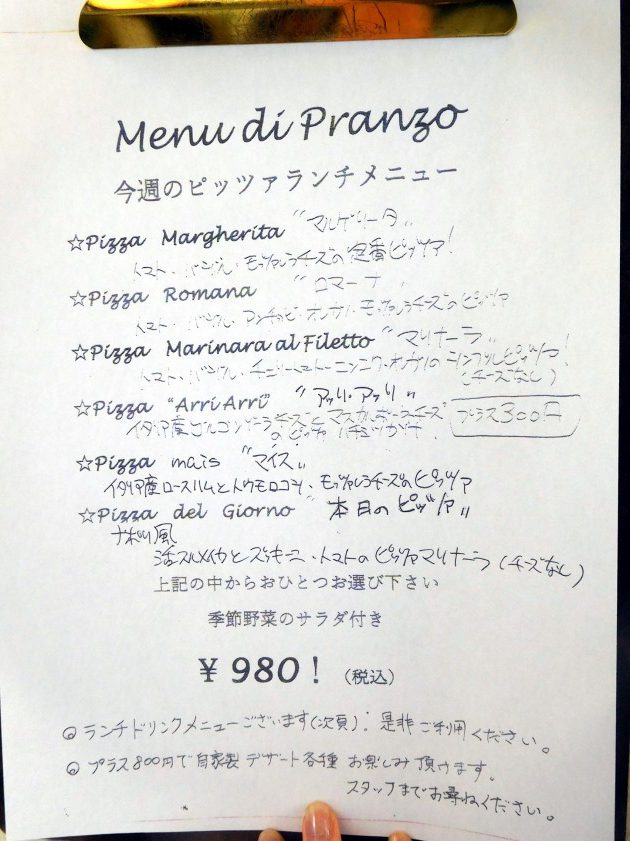 Menu di Pranzo
今週のピッツァランチメニュー
☆Pizza Margherita "マルゲリータ"
トマト・バジル・モッツァレラチーズの定番ピッツァ!
☆Pizza Romana "ロマーナ"
トマト・バジル・アンチョビ・オレガノ・モッツァレラチーズのピッツァ
☆Pizza Marinara al Filetto "マリナーラ"
トマト・バジル・チェリートマト・ニンニク・オレガノのシンプルピッツァ!
(チーズなし)
☆Pizza "Arri Arri" "アッリ・アッリ"
イタリア産ゴルゴンゾーラチーズとマスカルポーネチーズ
のピッツァ ハチミツがけ! プラス300円
☆Pizza mais "マイス"
イタリア産ロースハムとトウモロコシ、モッツァレラチーズのピッツァ
☆Pizza del Giorno "本日のピッツァ"
ナポリ風
活スルメイカとズッキーニ・トマトのピッツァマリナーラ(チーズなし)
上記の中からおひとつお選び下さい
季節野菜のサラダ付き
¥980! (税込)
◎ランチドリンクメニューございます(次頁)! 是非ご利用ください。
◎プラス800円で自家製デザート各種お楽しみ頂けます。
スタッフまでお尋ねください。